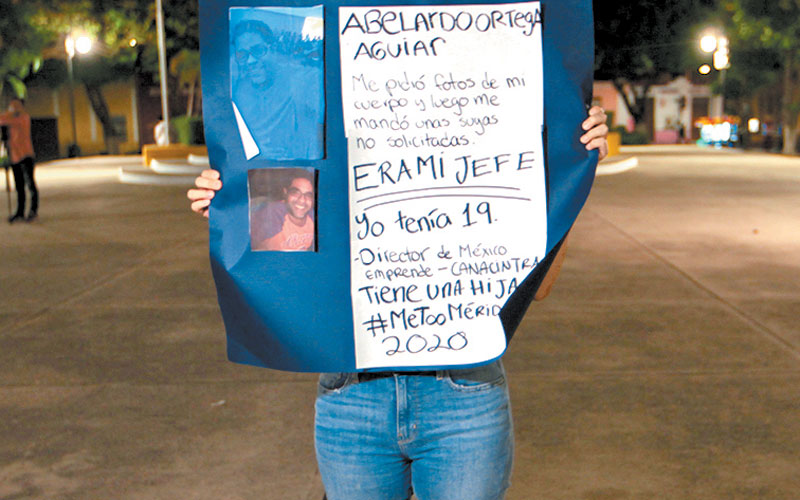 ABELARDO ORTEGA
AGUIAR
Me pidió fotos de mi
cuerpo y luego me
mandó unas suyas
no solicitadas.
ERA MI JEFE
Yo tenía 19.
-Director de México
emprende - CANACINTRA
TIENE UNA HIJA
#MeTooMérid
2020